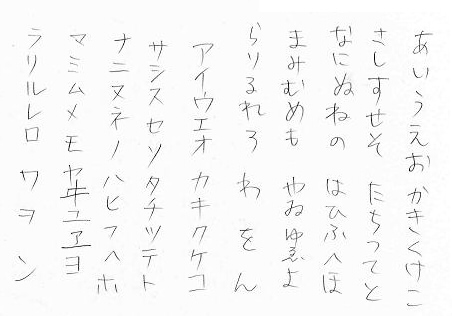 あいうえお かきくけこ
さしすせそ たちつてと
なにぬねの はひふへほ
まみむめも やゐゆゑよ
らりるれろ わ を ん
アイウエオ カキクケコ
サシスセソ タチツテト
ナニヌネノ ハヒフヘホ
マミムメモ ヤヰユヱヨ
ラリルレロ ワ ヲ ン